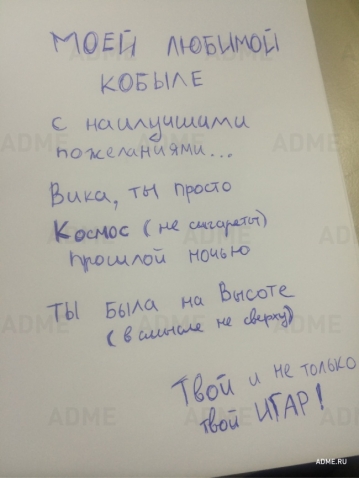 МОЕЙ ЛЮБИМОЙ
КОБЫЛЕ
С НАИЛУЧШИМИ
ПОЖЕЛАНИЯМИ...
Вика, ты просто
Космос (не сигареты)
прошлой ночью
ТЫ БЫЛА на Высоте
(в смысле не сверху)
Твой и не только
твой ИГАР!
ADME.RU